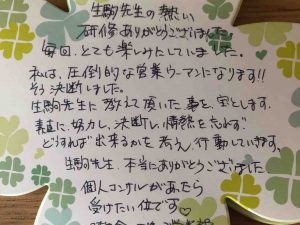 生駒先生の熱い
研修ありがとうございました。
毎回、とても楽しみにしていました。
私は、圧倒的な営業ウーマンになります!!
そう決断しました。
生駒先生に教えて頂いた事を、宝とします。
素直に、努力し、決断し、情熱を忘れず
どうすれば出来るかを考え、行動していきます。
生駒先生、本当にありがとうございました
個人コンサルがあったら
受けたい位です♡